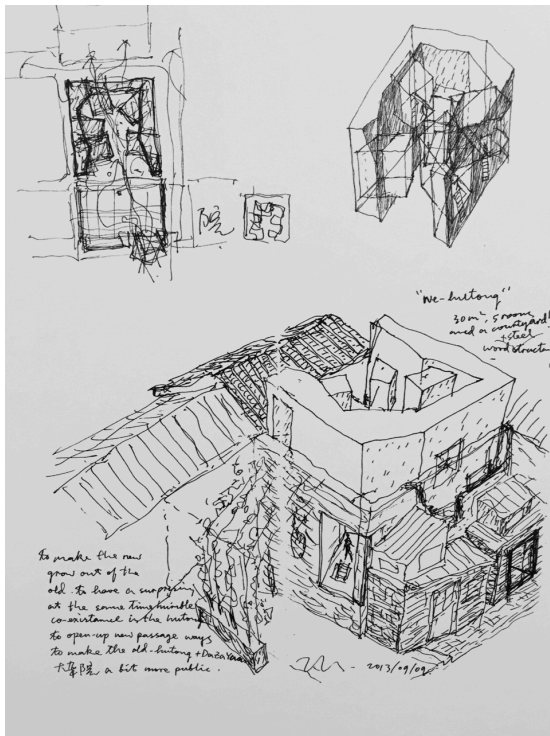 院
30m², 5 rooms
and a courtyard
+steel
wood structure
to make the new
grow out of the
old. to have a surprising
at the same time humble
co-existance in the hutong
to open-up new passage ways
to make the old-hutong + DaZaYuan
大杂院 a bit more public.
2013/09/09